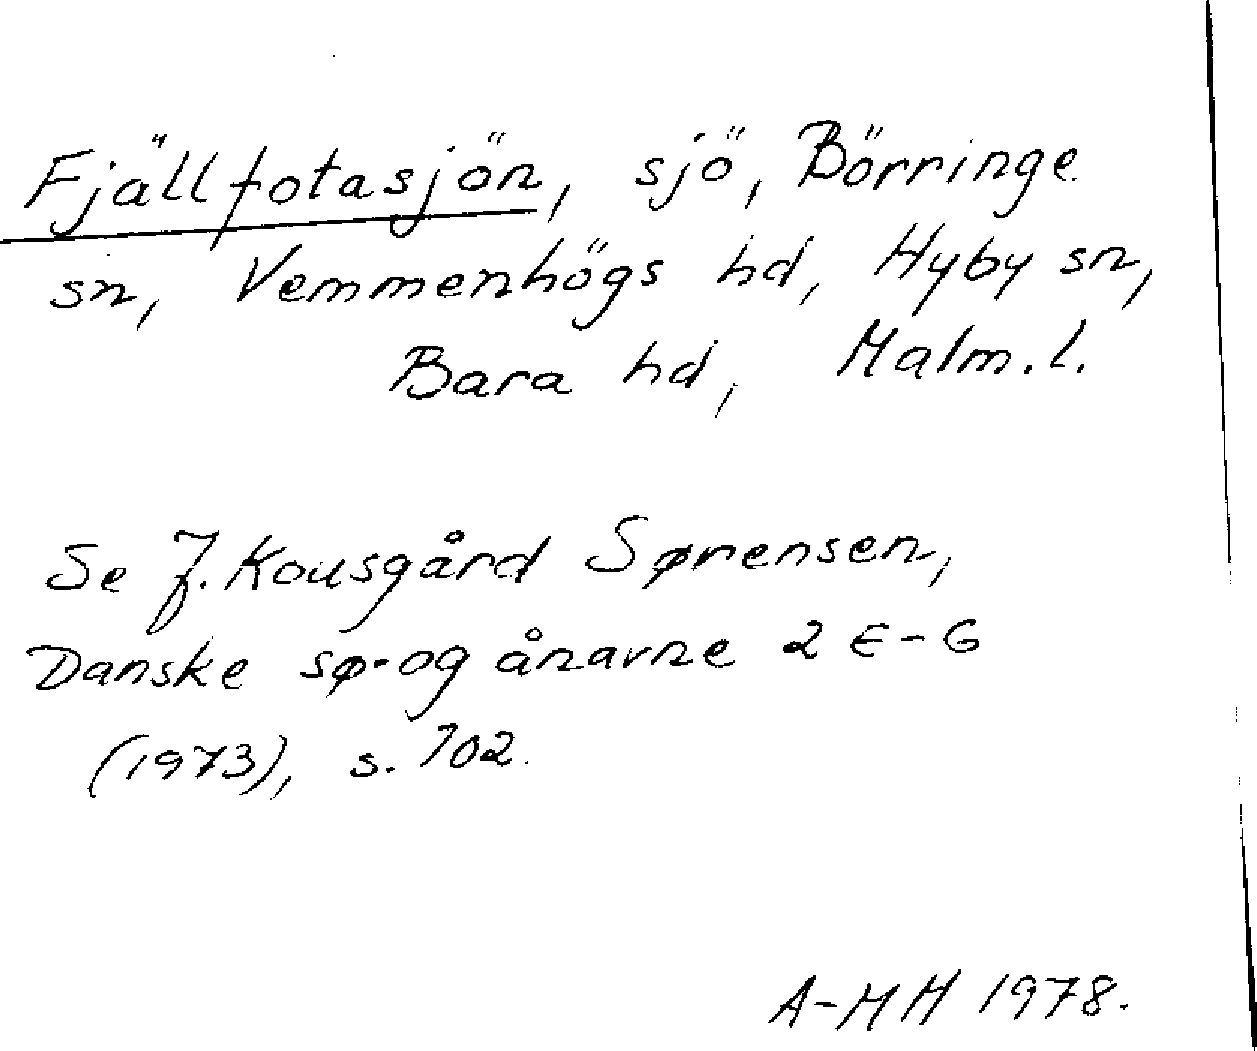 Fjällfotasjön, sjö, Börringe
sn, Vemmenhögs hd, Hyby sn,
Bara hd, Malm. l.
Se J. Kousgård Sørensen,
Danske sø- og ånavne 2 E-G
(1973), s. 702.
A-MH 1978.